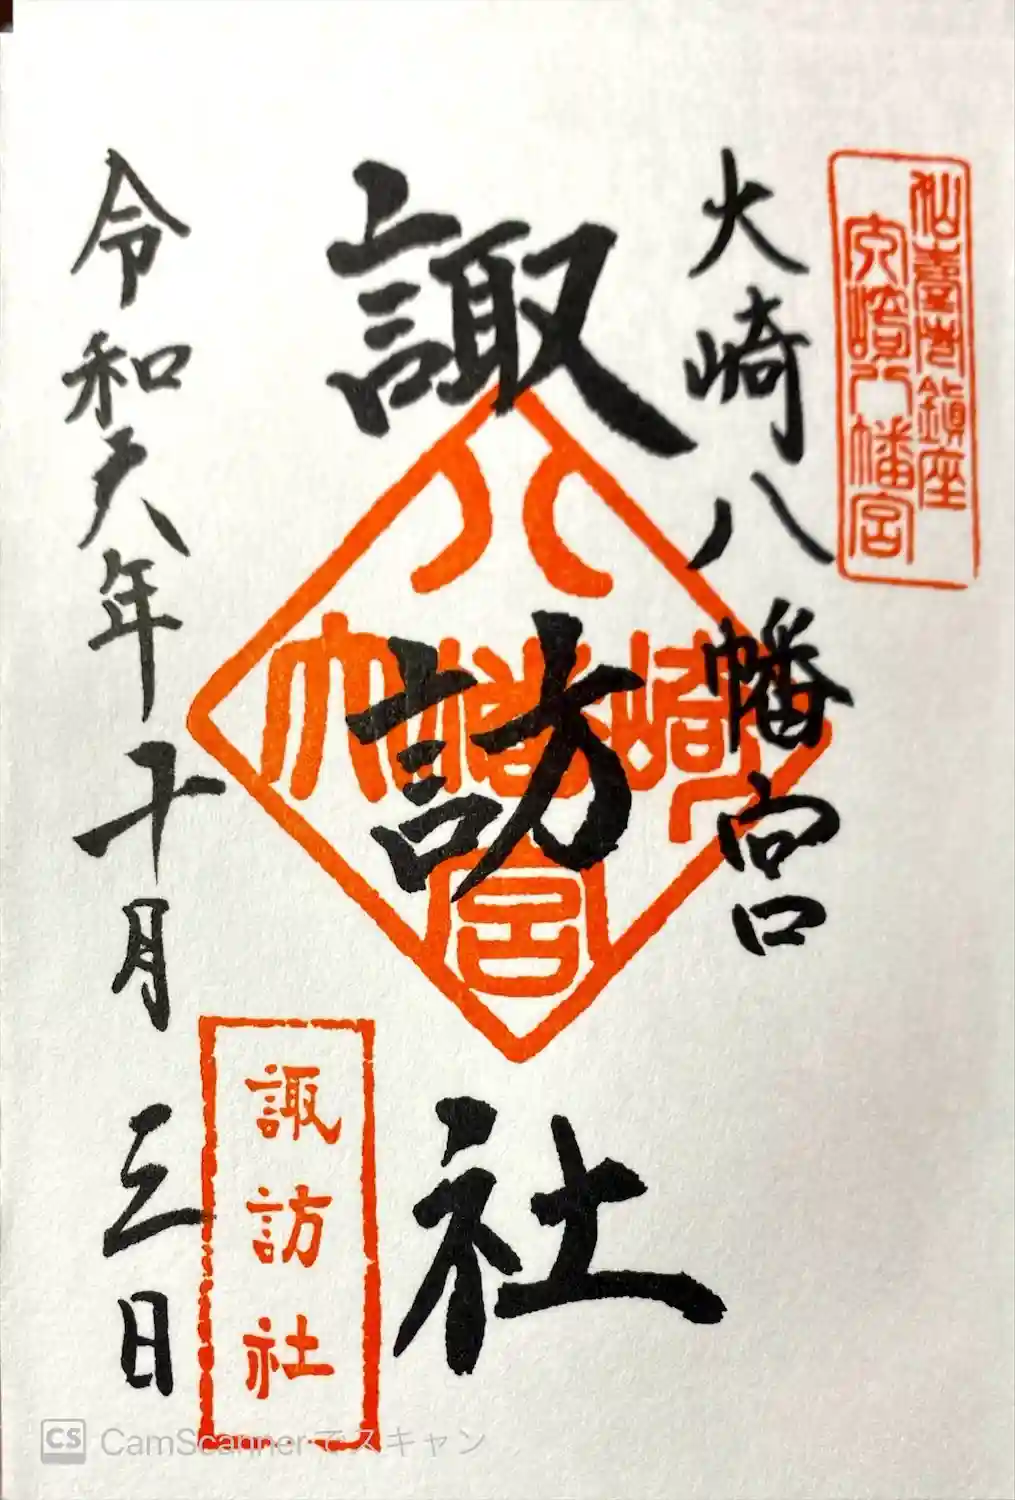 仙臺市鎮座
大崎八幡宮
大崎八幡宮
諏訪社
大崎八幡宮
令和六年十月三日
諏訪社
CS CamScannerでスキャン